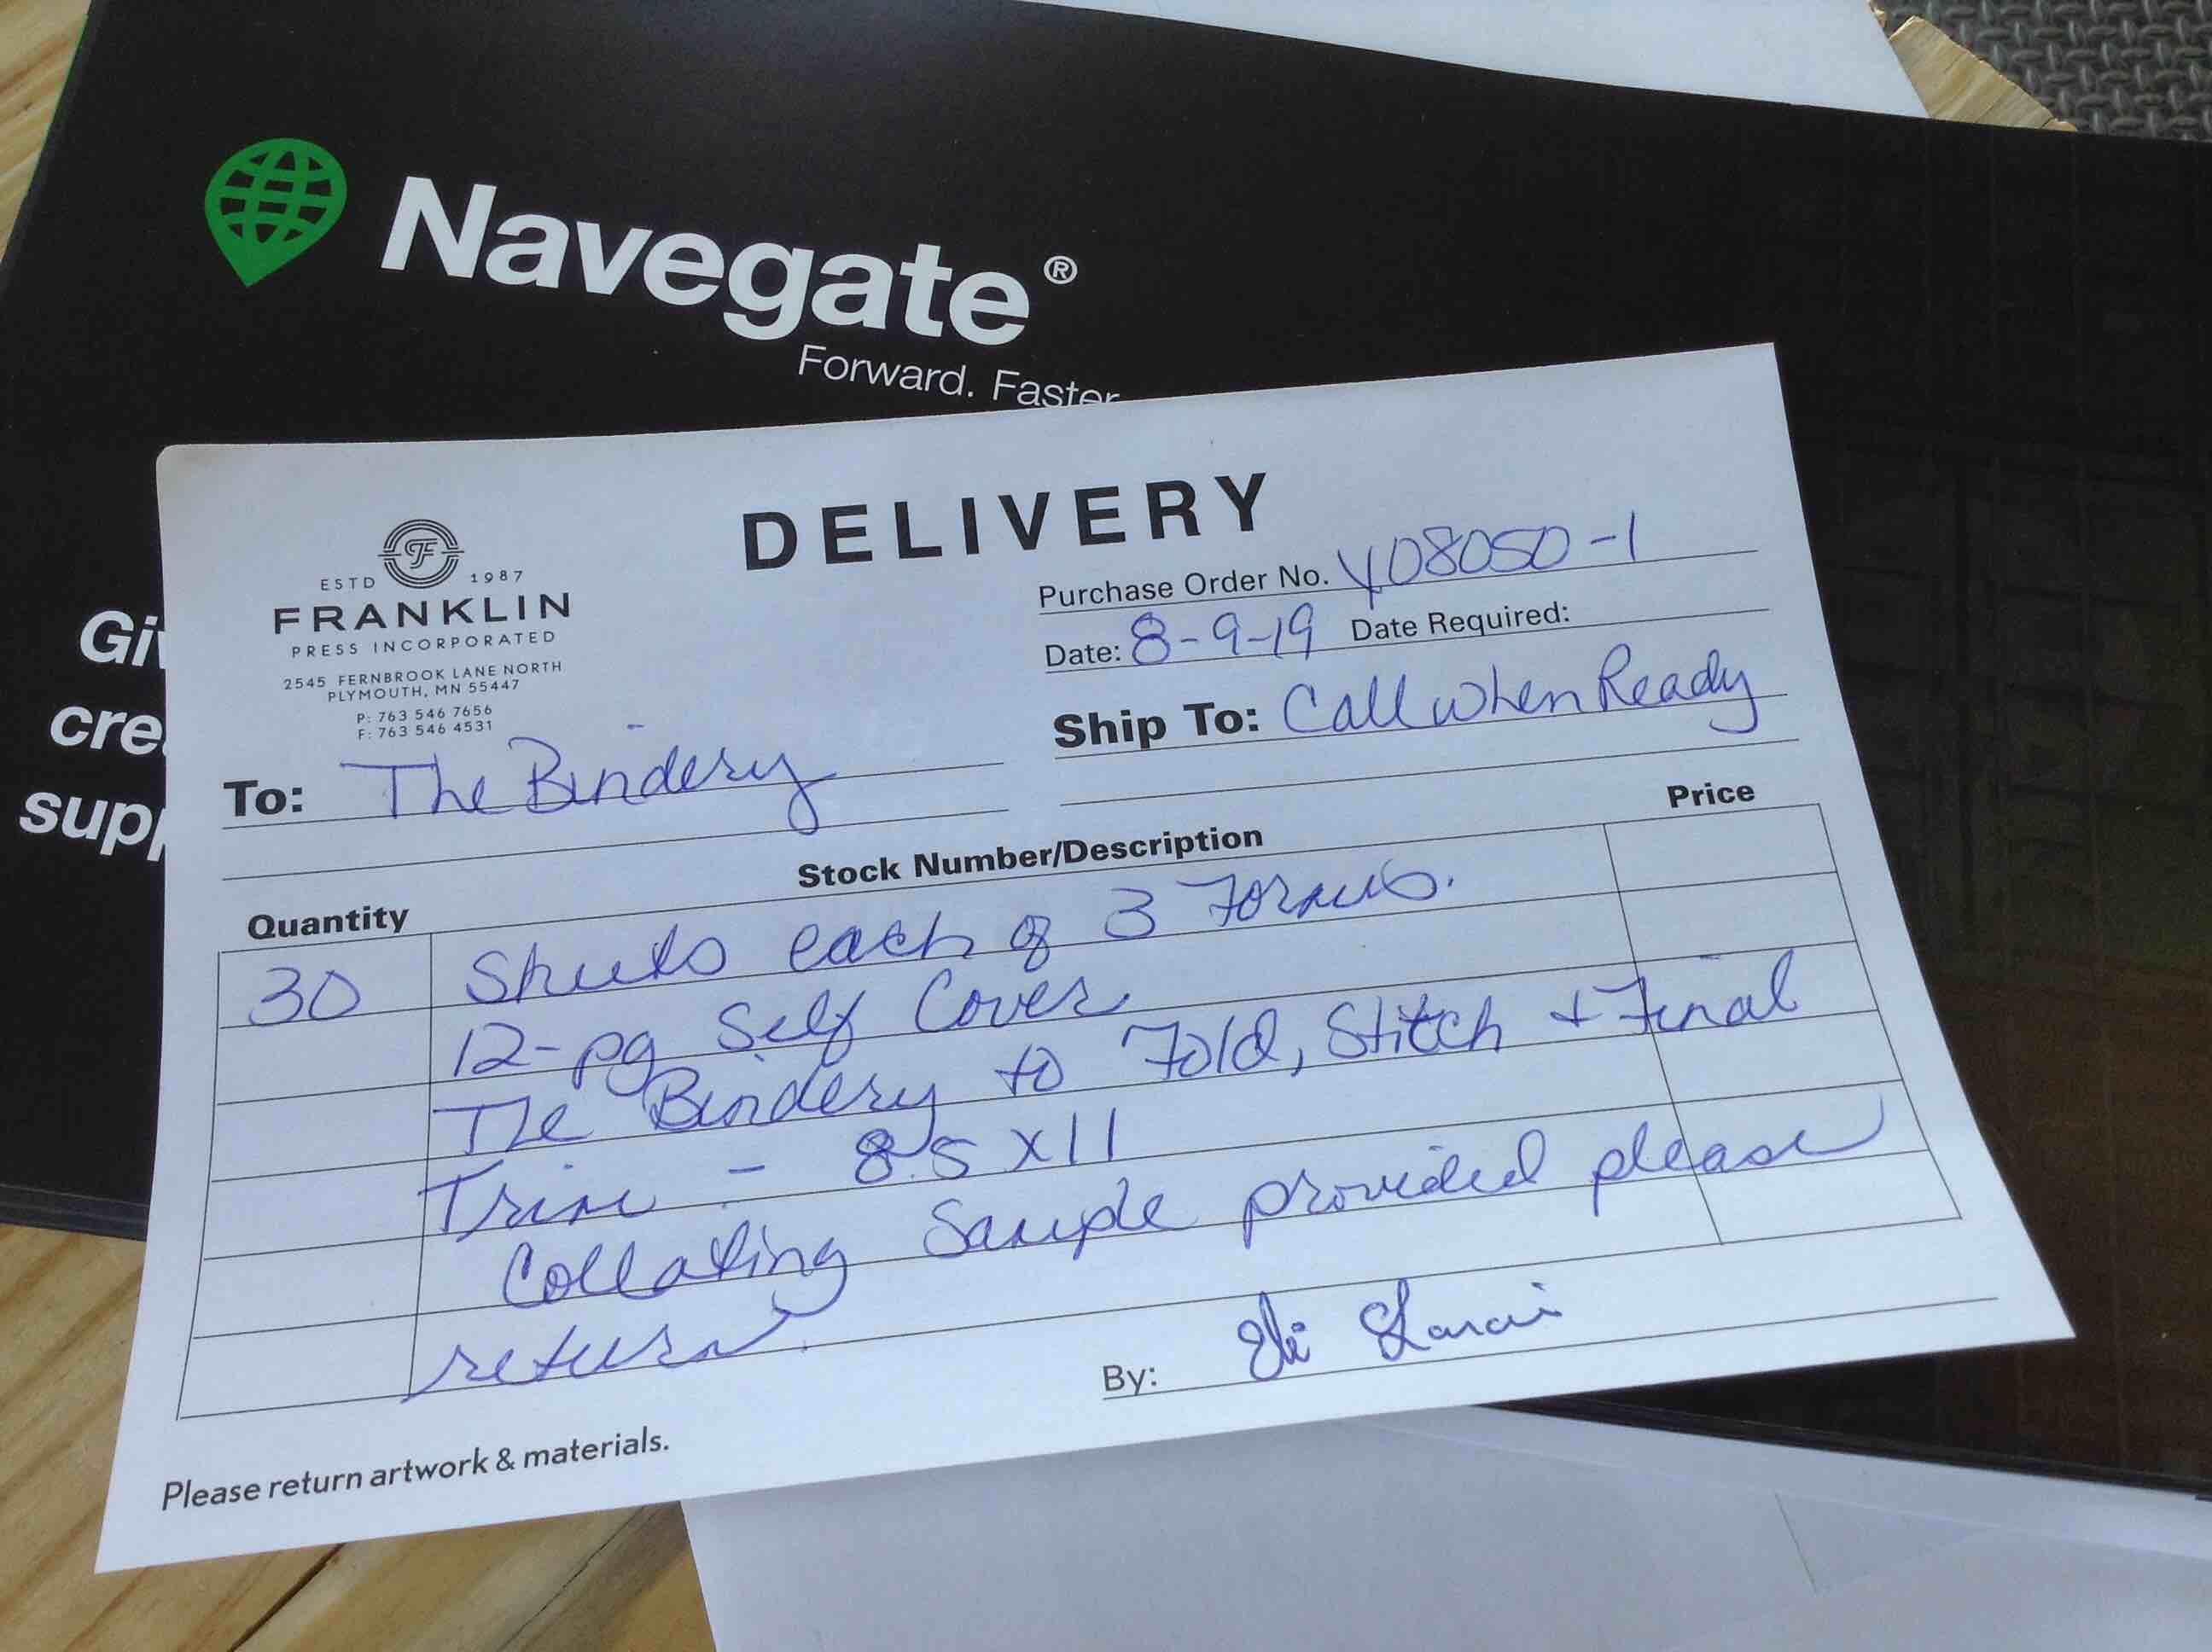 Navegate®
Forward. Faster
Gi
cre
sup
DELIVERY
ESTD 1987
FRANKLIN
PRESS INCORPORATED
2545 FERNBROOK LANE NORTH
PLYMOUTH, MN 55447
P: 763 546 7656
F: 763 546 4531
Purchase Order No. Y08050-1
Date: 8-9-19 Date Required:
Ship To: Call when Ready
To: The Bindery
Quantity Stock Number/Description Price
30 Sheets each of 3 Forms.
12-pg Self Cover
The Bindery to Fold, Stitch + Final
Trim - 8.5 x 11
Collating Sample provided please
return.
By:
Please return artwork & materials.